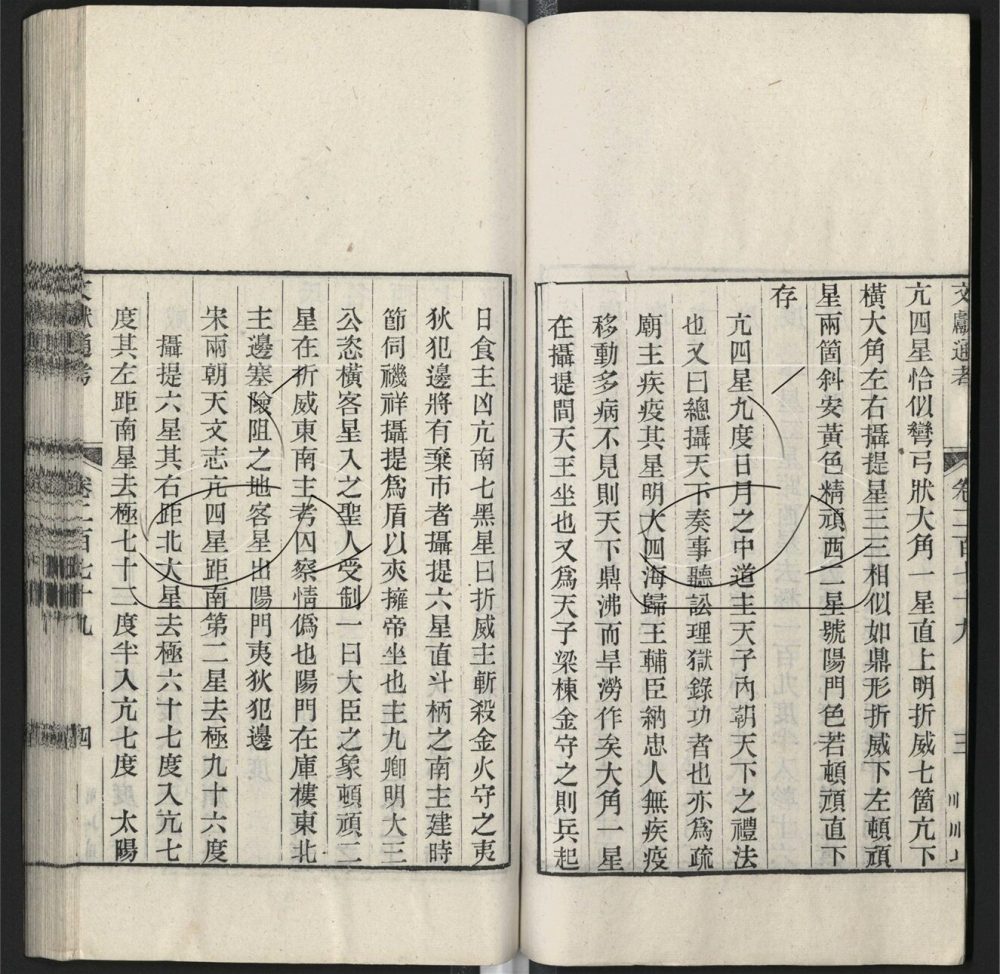 文獻通考 卷二百七十九 三
亢四星恰似彎弓狀大角一星直上明折威七箇亢下
橫大角左右攝提星三三相似如鼎形折威下左頓頑
星兩箇斜安黃色精頑西二星號陽門色若頓頑直下
存
亢四星九度日月之中道主天子內朝天下之禮法
也又曰總攝天下奏事聽訟理獄錄功者也亦爲疏
廟主疾疫其星明大四海歸王輔臣納忠人無疾疫
移動多病不見則天下鼎沸而旱澇作矣大角一星
在攝提間天王坐也又爲天子梁棟金守之則兵起
日食主凶亢南七黑星曰折威主斬殺金火守之夷
狄犯邊將有棄市者攝提六星直斗柄之南主建時
節伺禨祥攝提爲盾以夾擁帝坐也主九卿明大三
公恣橫客星入之聖人受制一曰大臣之象頓頑二
星在折威東南主考囚察情僞也陽門在庫樓東北
主邊塞險阻之地客星出陽門夷狄犯邊
宋兩朝天文志亢四星距南第二星去極九十六度
攝提六星其右距北大星去極六十七度入亢七
度其左距南星去極七十二度半入亢七度 太陽
文獻通考 卷二百七十九 四